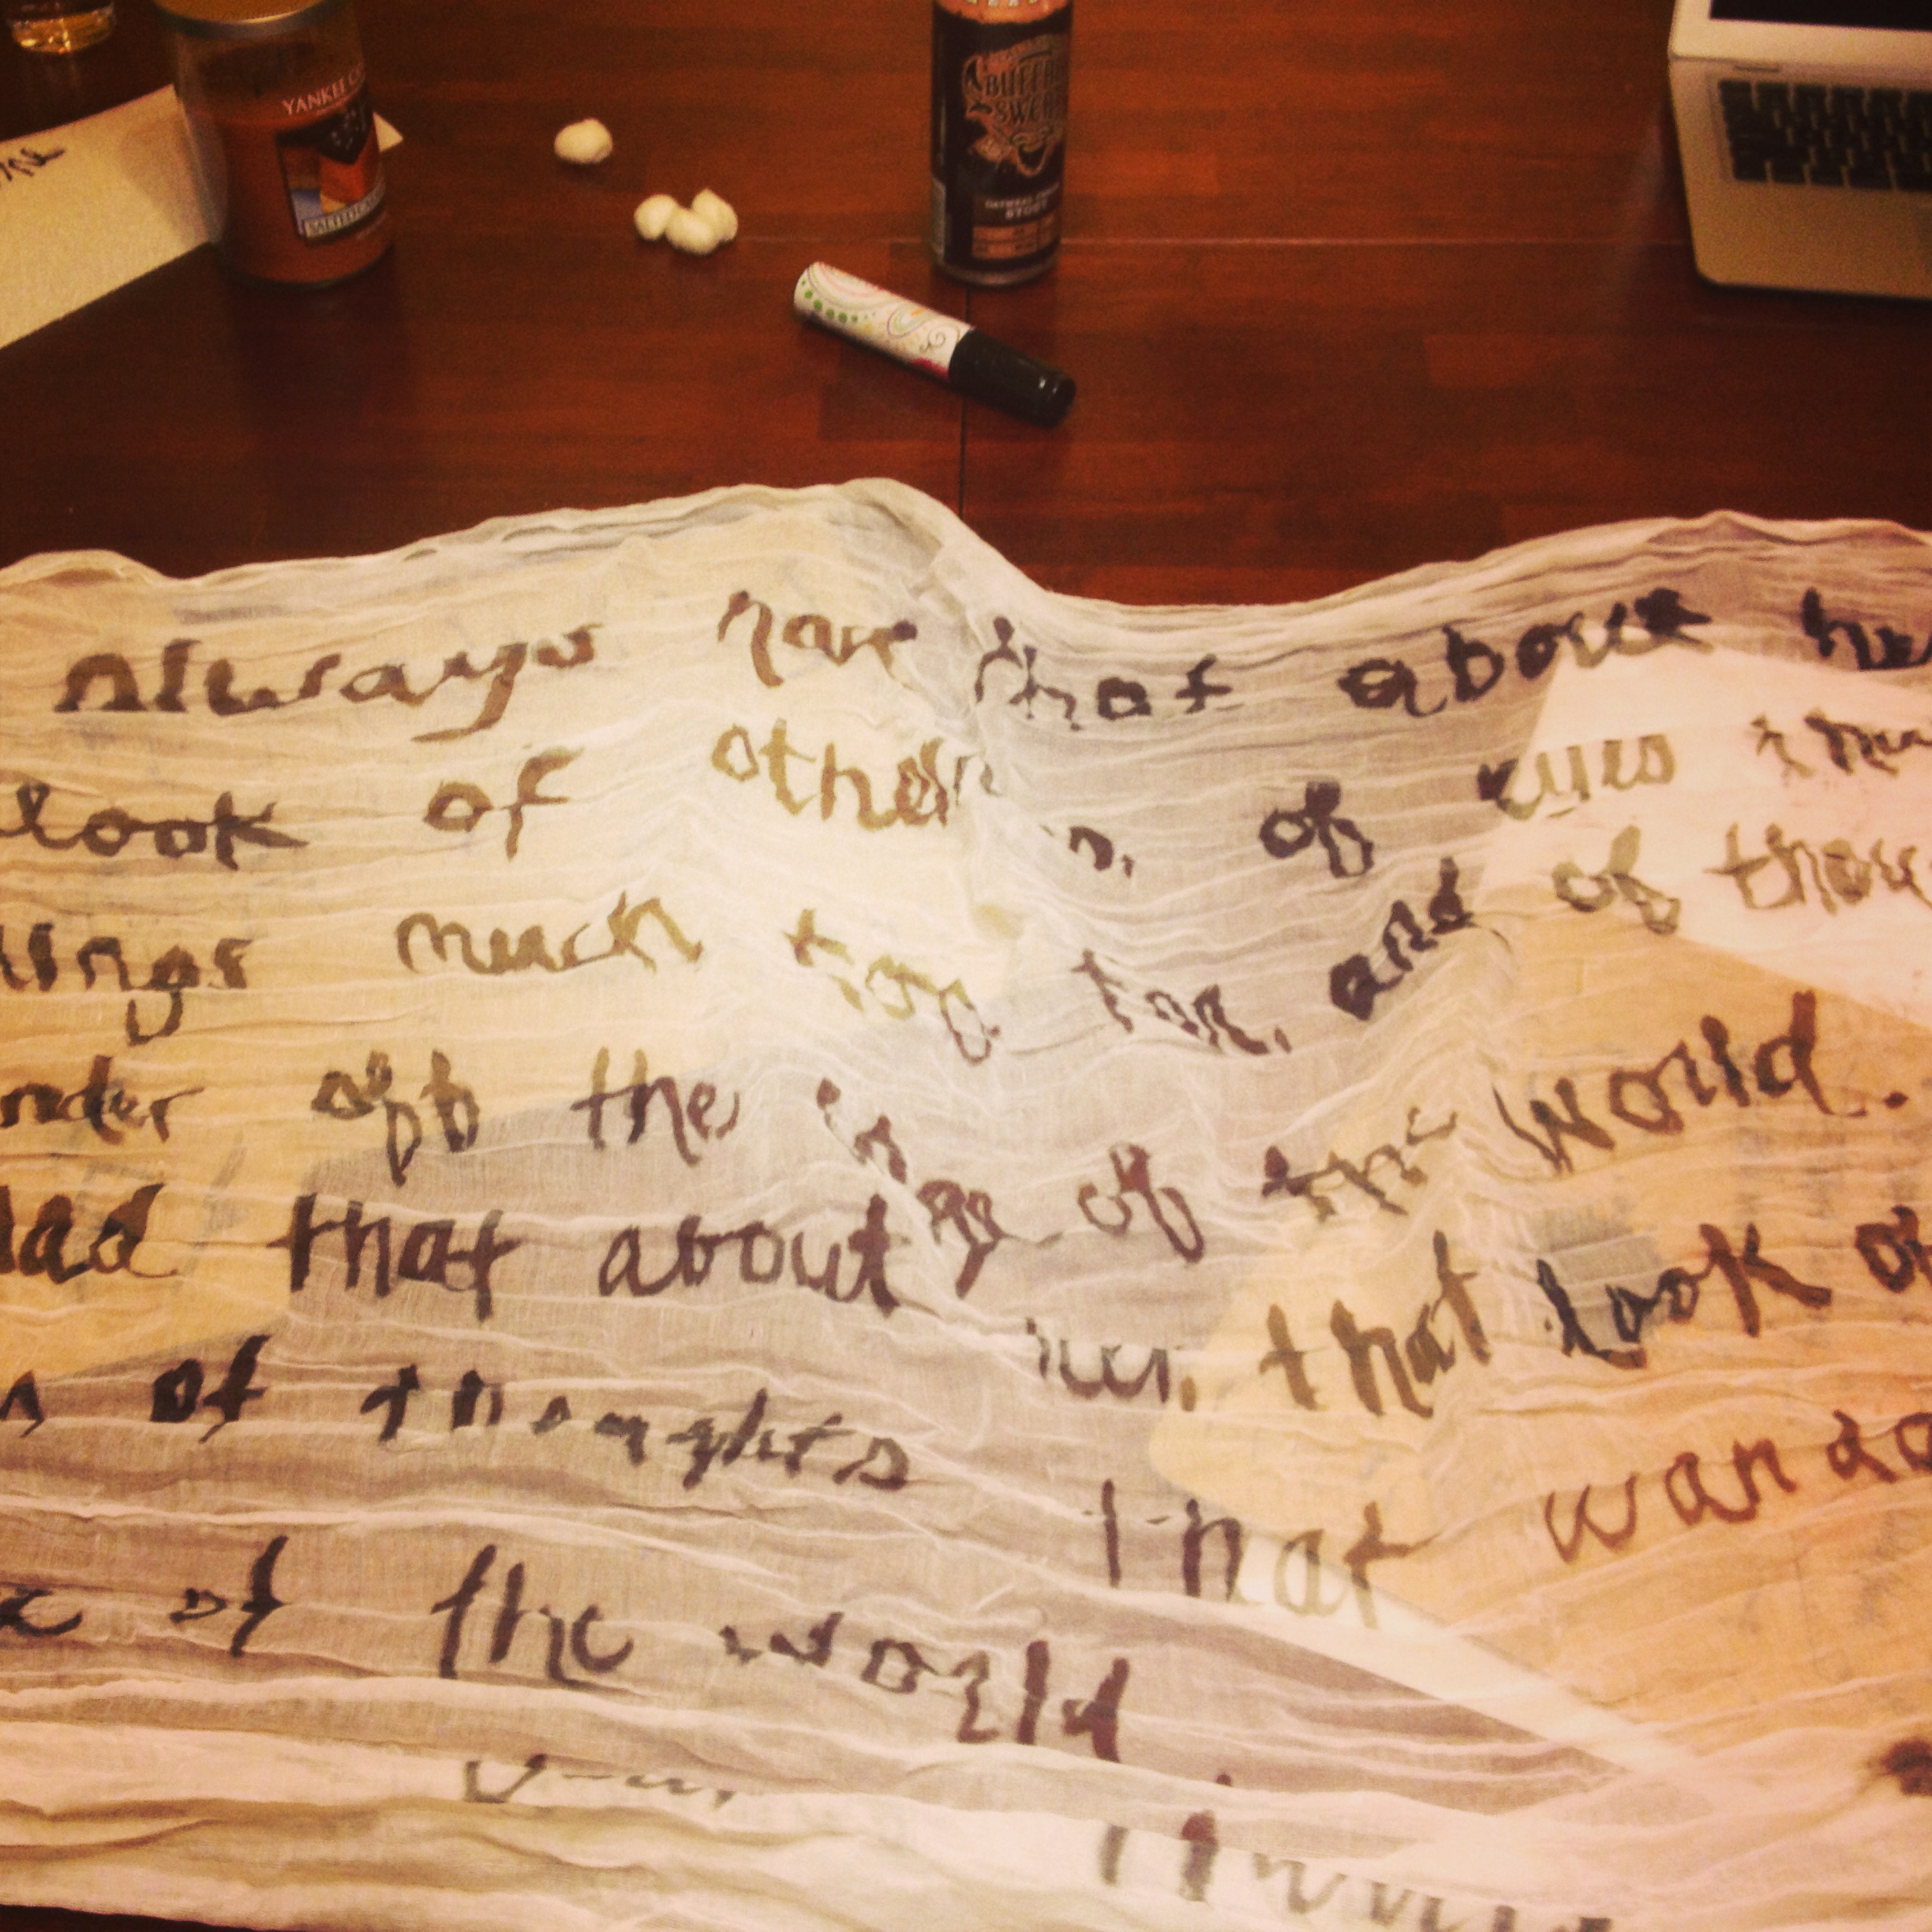 YANKEE C
SALTED CA
BUFF
SWE
OATMEAL
STOUT
Always have that about he
look of othern, of eyes
ings much too far, and of thou
nder off the edge of the world.
had that about her, that look of
s of thoughts that wande
e of the world